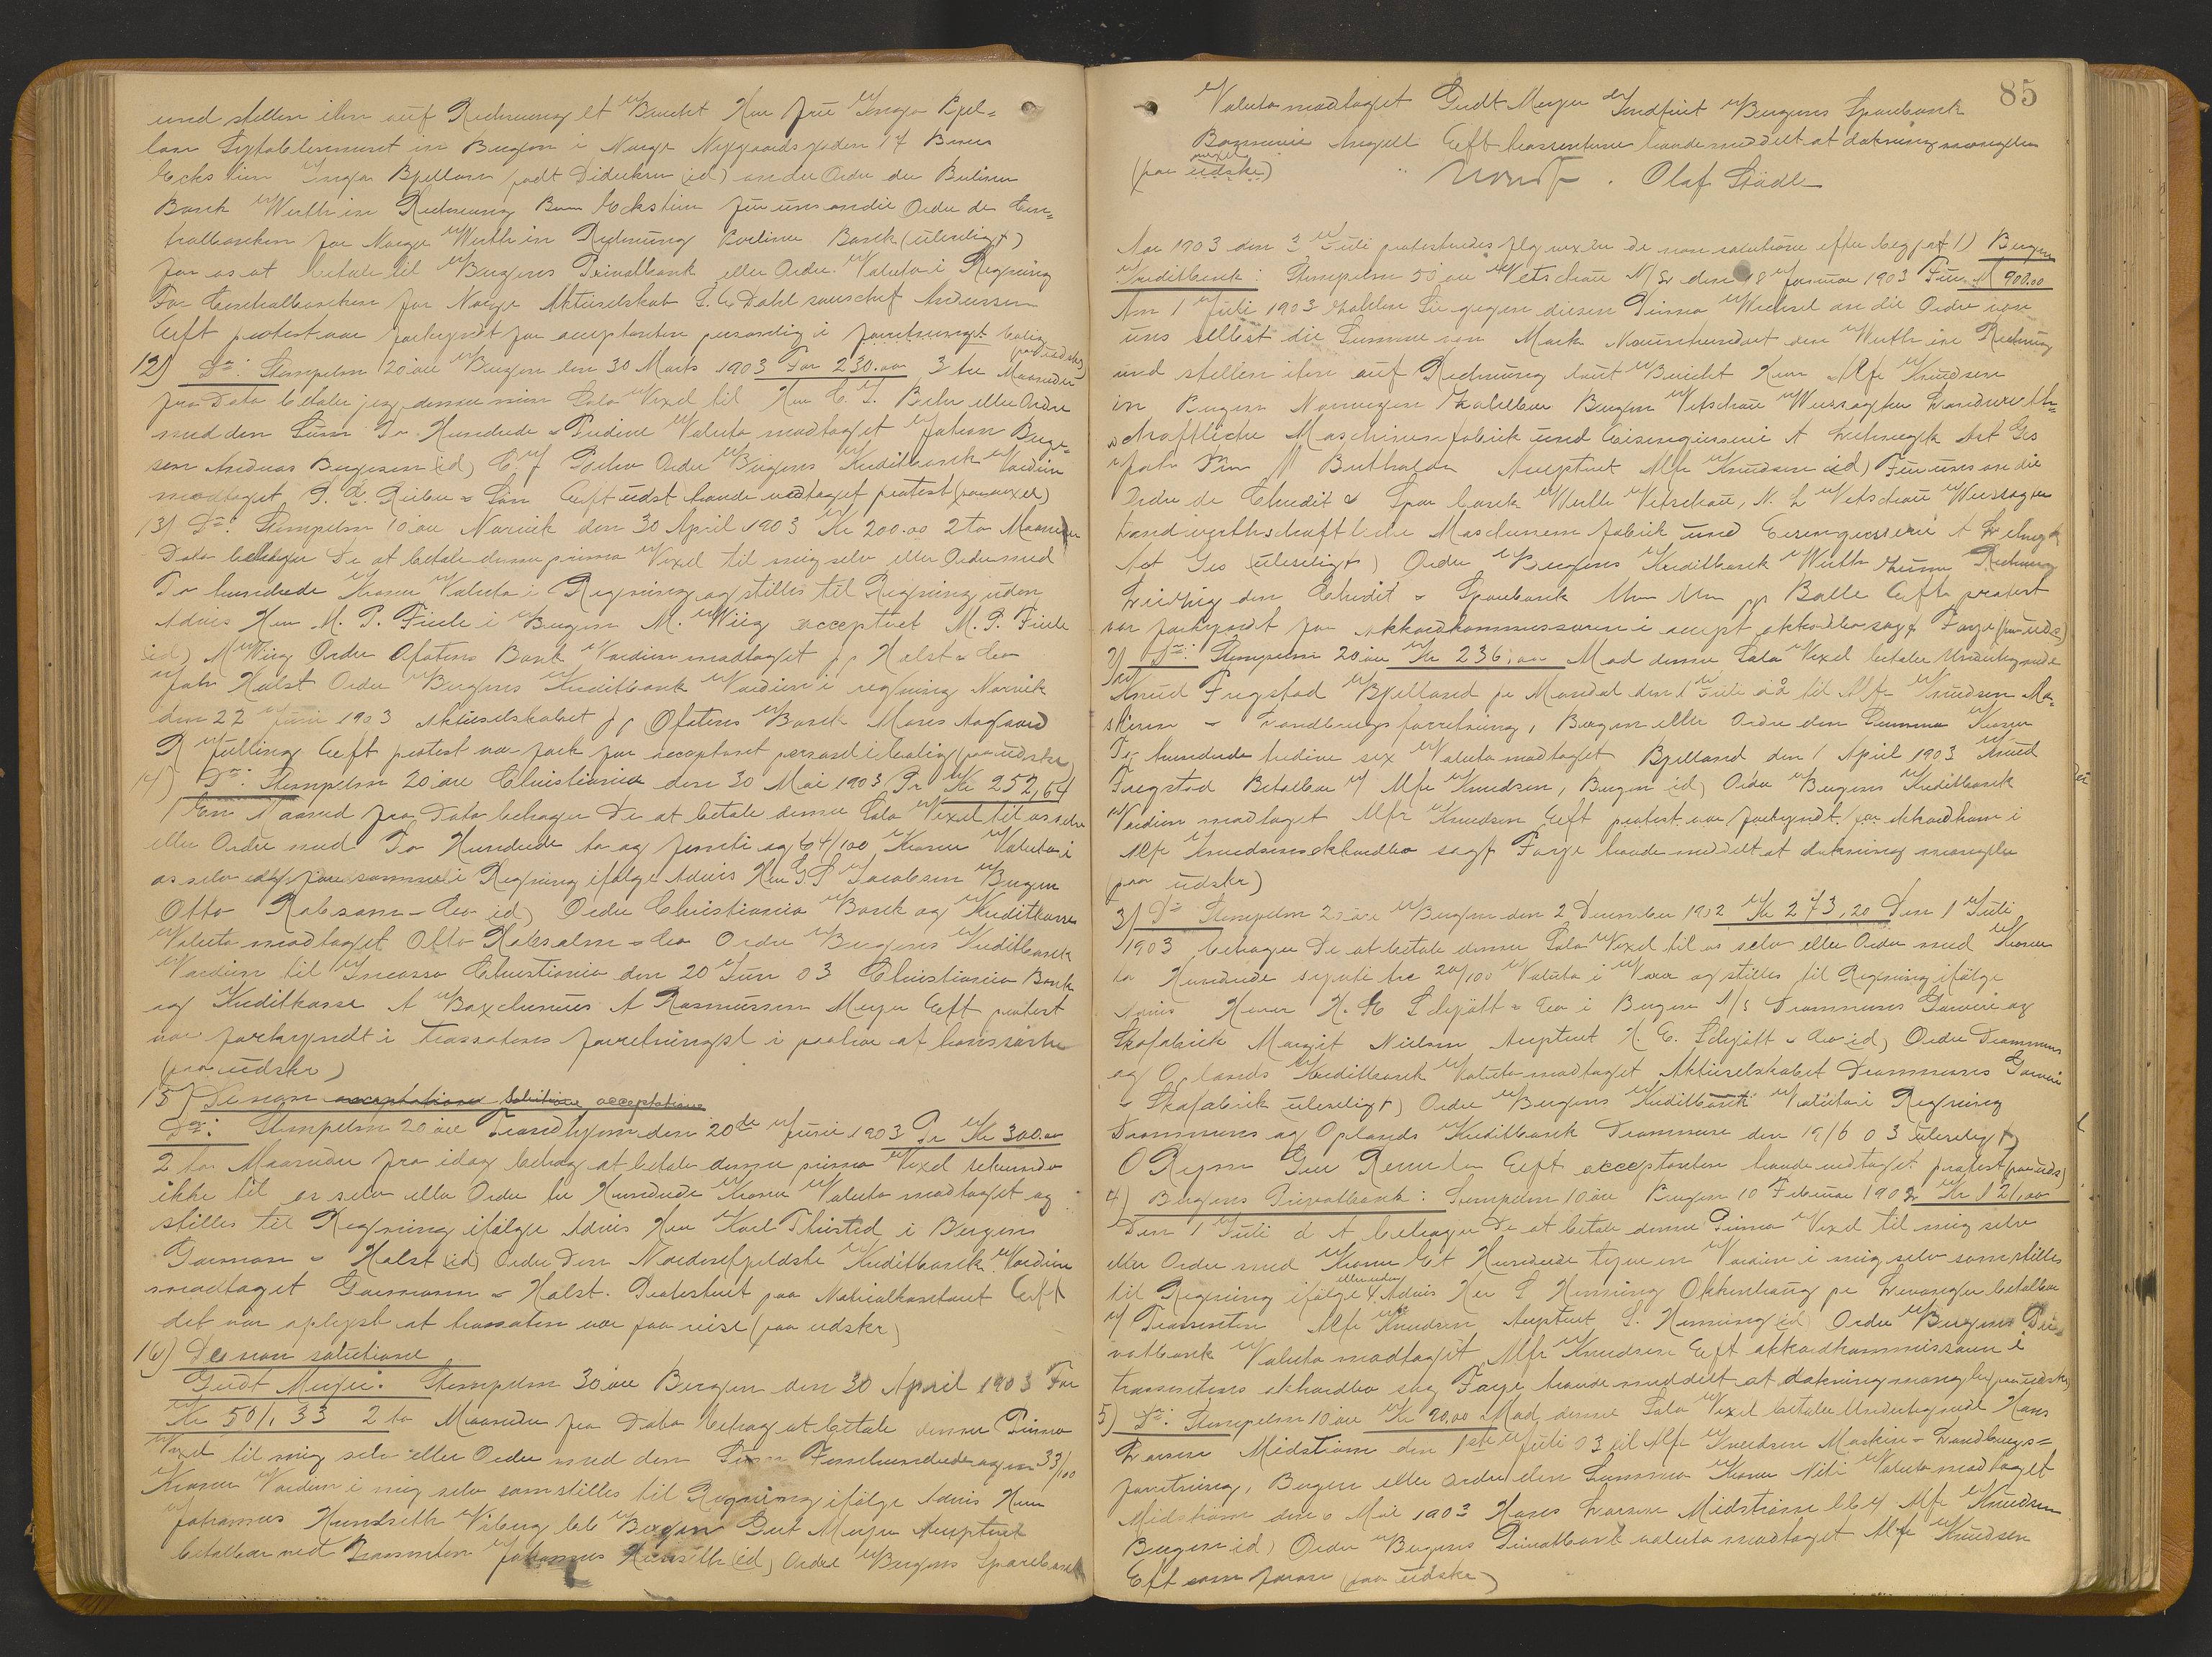 und stellen ihn auf Rechnung lt Bericht Herr Frü Inga Bjel-
lan in Bergen i Norge Nygaardsgaden 17 Benno
Eckstein Inga Bjelland født Didriksen (id) an die Ordre der Berliner
Bank Werth in Rechnung Benno Eckstein für uns an die Ordre der Cen-
tralbanken for Norge Werth in Rechnung Berliner Bank (uleseligt)
for os at betale til Bergens Privatbank eller Ordre. Valuta i Regning
For Centralbanken for Norge Aktieselskab Dahl Andersen
Eeft protest var forkyndt for acceptanten personlig i forretningst bolig
(paa udskr)
12) Do: Stempelm 20 øre Bergen den 30 Marts 1903 For 230.00 3 tre Maaneder
fra Dato betaler jeg denne min Sola Vexel til Herr C. J. Behr eller Ordre
med den Sum To Hundrede & Tredive Valuta modtaget Johan Berge-
sen Andreas Bergesen (id) C. J. Ordre Bergens Kreditbank Værdien
modtaget P. G. Rieber & Søn Eeft udst havde vedtaget protest (paa vexel)
13) Do: Stempelm 10 øre Narvik den 30 April 1903 Kr 200.00 2 to Maaneder
Dato behager De at betale denne prima Vexel til mig selv eller Ordre med
To hundrede Kroner Valuta i Regning og stilles til Regning uden
Advis Herr M. P. Fiile i Bergen M. Wiig acceptert M. P. Fiile
id) M Wiig Ordre Ofotens Bank Værdien modtaget pp Holst & Co
Joh Holst Ordre Bergens Kreditbank Værdien i regning Narvik
den 22 Juni 1903 Aktieselskabet pp Ofotens Bank Mons Aagaard
R Jutting Eeft protest var fork for acceptant personl i bolig (paa udskr)
14) Do: Stempelm 20 øre Christiania den 30 Mai 1903 Pr Kr 252,64
1 En Maaned fra Dato behager De at betale denne Sola Vexel til os selv
eller Ordre med To Hundrede to og femti og 64/100 Kroner Valuta i
os selv som i Regning ifølge Advis Herr G. S Jacobsen Bergen
Otto Robsam & Co id) Ordre Christiania Bank og Kreditkasse
Valuta modtaget Otto Robsahm & Co Ordre Bergens Kreditbank
Værdien til Incasso Christiania den 20 Juni 03 Christiania Bank
og Kreditkasse A A Rasmussen Meyer Eeft protest
var forkyndt i Trassatens forretningsl i paahør af hans søster
(paa udskr)
15) De non acceptatione solutione acceptatione
Do: Stempelm 20 øre Trondhjem den 20de Juni 1903 Pr Kr 300.00
2 to Maaneder fra idag behag at betale denne prima Vexel secunda
ikke til os selv eller Ordre tre Hundrede Kroner Valuta modtaget og
stilles til Regning ifølge Advis Herr Karl Thisted i Bergen
Garmann & Holst (id) Ordre Den Nordenfjeldske Kreditbank Værdien
modtaget Garmann & Holst. Protestert paa Notarialkontoret Eeft
det var oplyst at trassaten var paa reise (paa udskr)
16) De non solutione
Gerdt Meyer: Stempelm 30 øre Bergen den 30 April 1903 For
Kr 501,33 2 to Maaneder fra Dato behag at betale denne Prima
Vexel til mig selv eller Ordre med den Sum Femhundrede og en 33/100
Kroner Værdien i mig selv som stilles til Regning ifølge Advis Herr
Johannes Hundseth Bergen Gert Meyer Acceptert
betalbar ved Trassenten Johannes Hundseth (id) Ordre Bergens Sparebank
85
Valuta modtaget Gerdt Meyer Indfriet Bergens Sparebank
Eeft trassenten havde meddelt at dækning mangler
(paa vexel udskr) Olaf Stadt
Aar 1903 den 3 Juli protesteredes flg vexler de non solutione efter begj af 1) Bergens
Kreditbank: Stempelm 50 øre Vetschau N/L den 18 Januar 1903 Für M 900.00
Am 1 Juli 1903 zahlen Sie gegen diesen Prima Wechsel an die Ordre von
uns selbst die Summe von Mark Neunhundert den Werth in Rechnung
und stellen ihn auf Rechnung laut Bericht Herrn Alfr Knudsen
in Bergen Norwegen Zahlbar Bergen Vetschau Weissagker Landwirth-
schaftliche Maschinenfabrik und Eisengiesserei A Lehnigk Act Ges
Acceptert Alfr Knudsen id) Für uns an die
Ordre der Credit & Spar bank Werth Vetschau, N. L Vetschau Weissagker
Landwirthschaftliche Maschinenfabrik und Eisengiesserei A Lehnigk
Act Ges (uleseligt) Ordre Bergens Kreditbank Werth zum Rechnung
Leipzig den Credit & Sparbank pp Balle Eeft protest
var forkyndt for akkordkommissæren i accept akkordbo sagf Faye (paa uds)
2) Do: Stempelm 20 øre Kr 236,00 Mod denne Sola Vexel betaler Undertegnede
Knud Fregstad Bjelland pr Mandal den 1 Juli då til Alfr Knudsen Ma-
skiner & Landbrugsforretning, Bergen eller Ordre den Summa Kroner
To hundrede tredive sex Valuta modtaget Bjelland den 1 April 1903 Knud
Fregstad Betalbar v/ Alfr Knudsen, Bergen id) Ordre Bergens Kreditbank
Værdien modtaget Alfr Knudsen Eeft protest var forkyndt for akkordkom i
Alfr Knudsens akkordbo sagf Faye havde meddelt at dækning mangler
(paa udskr)
3) Do Stempelm 20 øre Bergen den 2 December 1902 Kr 273,20 Den 1 Juli
1903 behager De at betale denne Sola Vexel til os selv eller Ordre med Kroner
to Hundrede sytti tre 20/100 Valuta i Varer og stilles til Regning ifølge
Advis Herrer H. E Schjøtt & Co i Bergen A/S Drammens Garveri og
Skofabrik Margit Nielsen Acceptert H. E. Schjøtt & Co id) Ordre Drammens
og Oplands Kreditbank Valuta modtaget Aktieselskabet Drammens Garveri
& Skofabrik uleseligt) Ordre Bergens Kreditbank Valuta i Regning
Drammens og Oplands Kreditbank Drammen den 19/6 03 uleseligt
Eeft acceptanten havde vedtaget protest (paa uds)
4) Bergens Privatbank: Stempelm 10 øre Bergen 10 Februar 1903 Kr 121,00
Den 1 Juli d A behager De at betale denne Prima Vexel til mig selv
eller Ordre med Kroner Et Hundrede tyve en Værdien i mig selv som stilles
til Regning ifølge Advis Herr L Henning Okkenhaug pr Levanger betalbar
v/ Trassenten Alfr Knudsen Acceptert L. Henning (id) Ordre Bergens Pri-
vatbank Valuta modtaget Alfr Knudsen Eeft akkordkommissæren i
trassentens akkordbo sag Faye havde meddelt at dækning mangler (paa udskr)
5) Do: Stempelm 10 øre Kr 90,00 Mod denne Sola Vexel betaler Undertegnede Hans
Larsen Midstrøm den 1ste Juli 03 til Alfr Knudsen Maskin & Landbrugs-
forretning, Bergen eller ordre den Summa Kroner Niti Valuta modtaget
Midstrøm den 6 Mai 1903 Hans Larsen Midstrøm Alfr Knudsen
Bergen id) Ordre Bergens Privatbank valuta modtaget Alfr Knudsen
Eeft som foran (paa udskr)